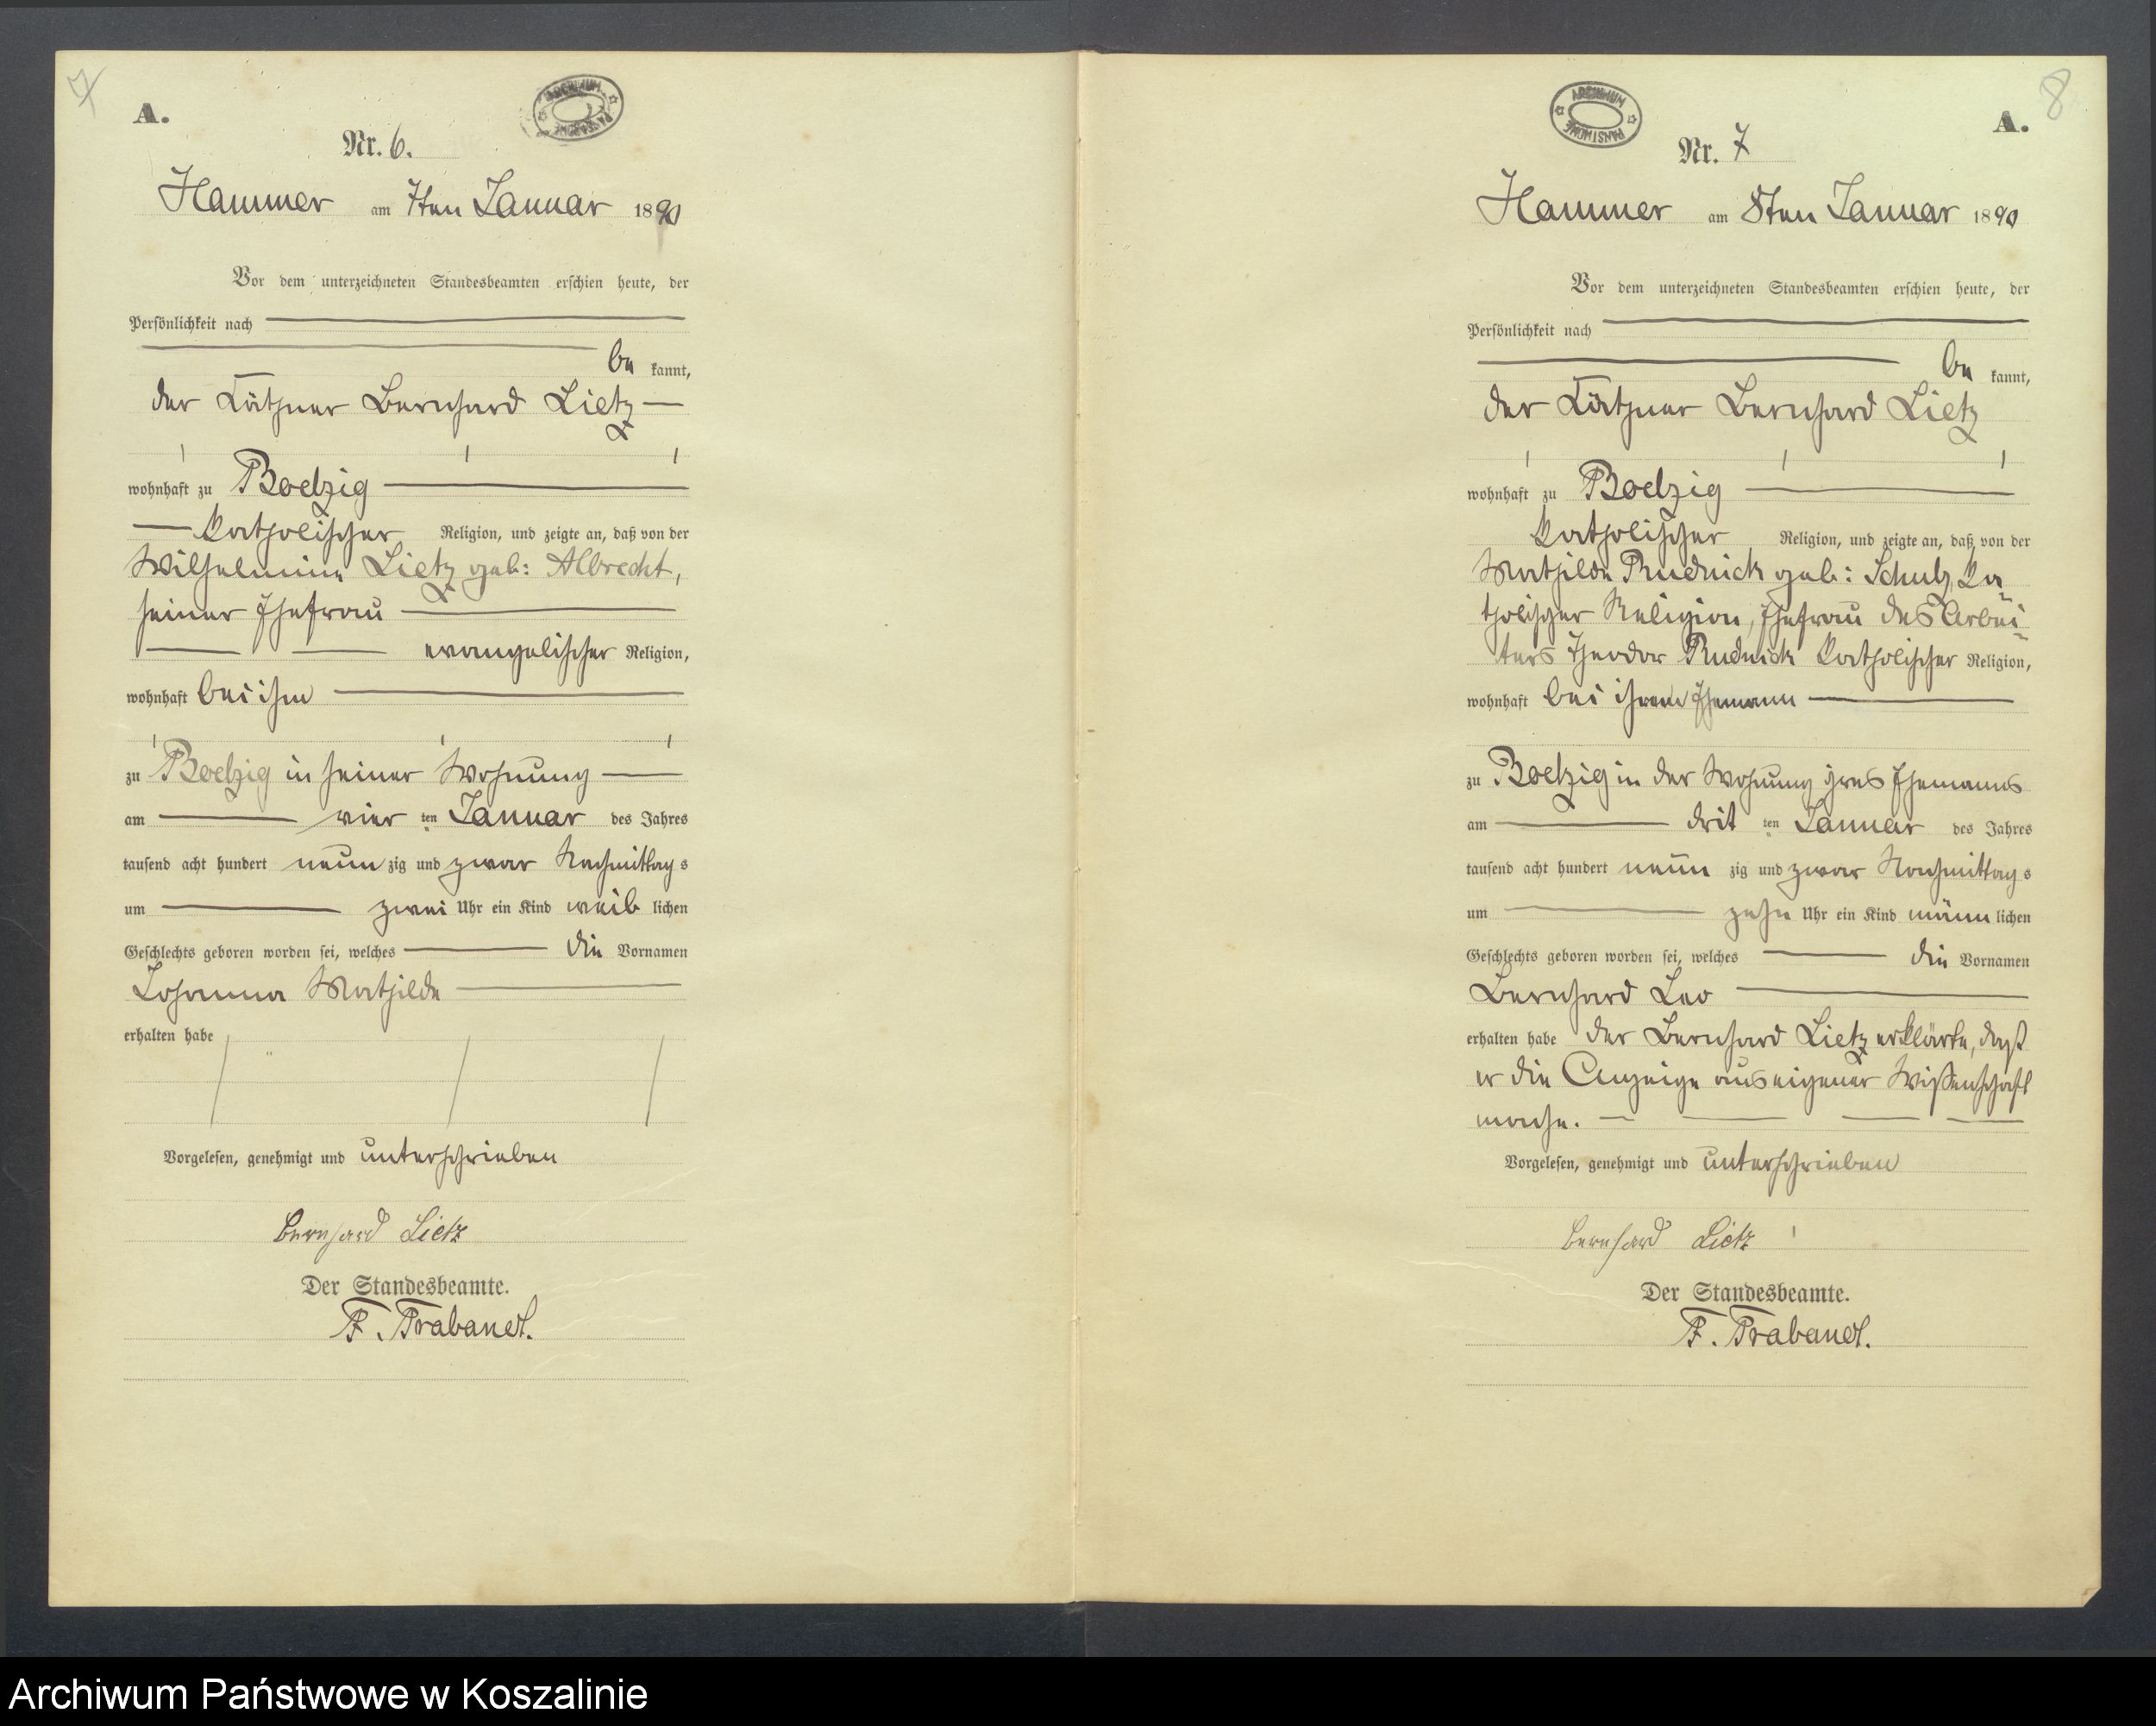 7
A.
ARCHIWUM PAŃSTWOWE
Nr. 6.
Hammer am 7ten Januar 1890
Vor dem unterzeichneten Standesbeamten erschien heute, der
Persönlichkeit nach
be kannt,
der Käthner Bernhard Lietz
wohnhaft zu Boetzig
katholischer Religion, und zeigte an, daß von der
Wilhelmine Lietz geb: Albrecht,
seiner Ehefrau
evangelischer Religion,
wohnhaft bei ihm
zu Boetzig in seiner Wohnung
am vier ten Januar des Jahres
tausend acht hundert neun zig und zwar Nachmittag s
um zwei Uhr ein Kind weib lichen
Geschlechts geboren worden sei, welches die Vornamen
Johanna Mathilde
erhalten habe
Vorgelesen, genehmigt und unterschrieben
Bernhard Lietz
Der Standesbeamte.
F. Brabandt.
8
A.
ARCHIWUM PAŃSTWOWE
Nr. 7
Hammer am 8ten Januar 1890
Vor dem unterzeichneten Standesbeamten erschien heute, der
Persönlichkeit nach
be kannt,
der Käthner Bernhard Lietz
wohnhaft zu Boetzig
katholischer Religion, und zeigte an, daß von der
Mathilde Rudnick geb: Schulz, ka
tholischer Religion, Ehefrau des Arbei
ters Theodor Rudnick katholischer Religion,
wohnhaft bei ihrem Ehemann
zu Boetzig in der Wohnung ihres Ehemanns
am drit ten Januar des Jahres
tausend acht hundert neun zig und zwar Nachmittag s
um zehn Uhr ein Kind männ lichen
Geschlechts geboren worden sei, welches die Vornamen
Bernhard Leo
erhalten habe der Bernhard Lietz erklärte, daß
er die Anzeige aus eigener Wißenschaft
mache.
Vorgelesen, genehmigt und unterschrieben
Bernhard Lietz
Der Standesbeamte.
F. Brabandt.
Archiwum Państwowe w Koszalinie